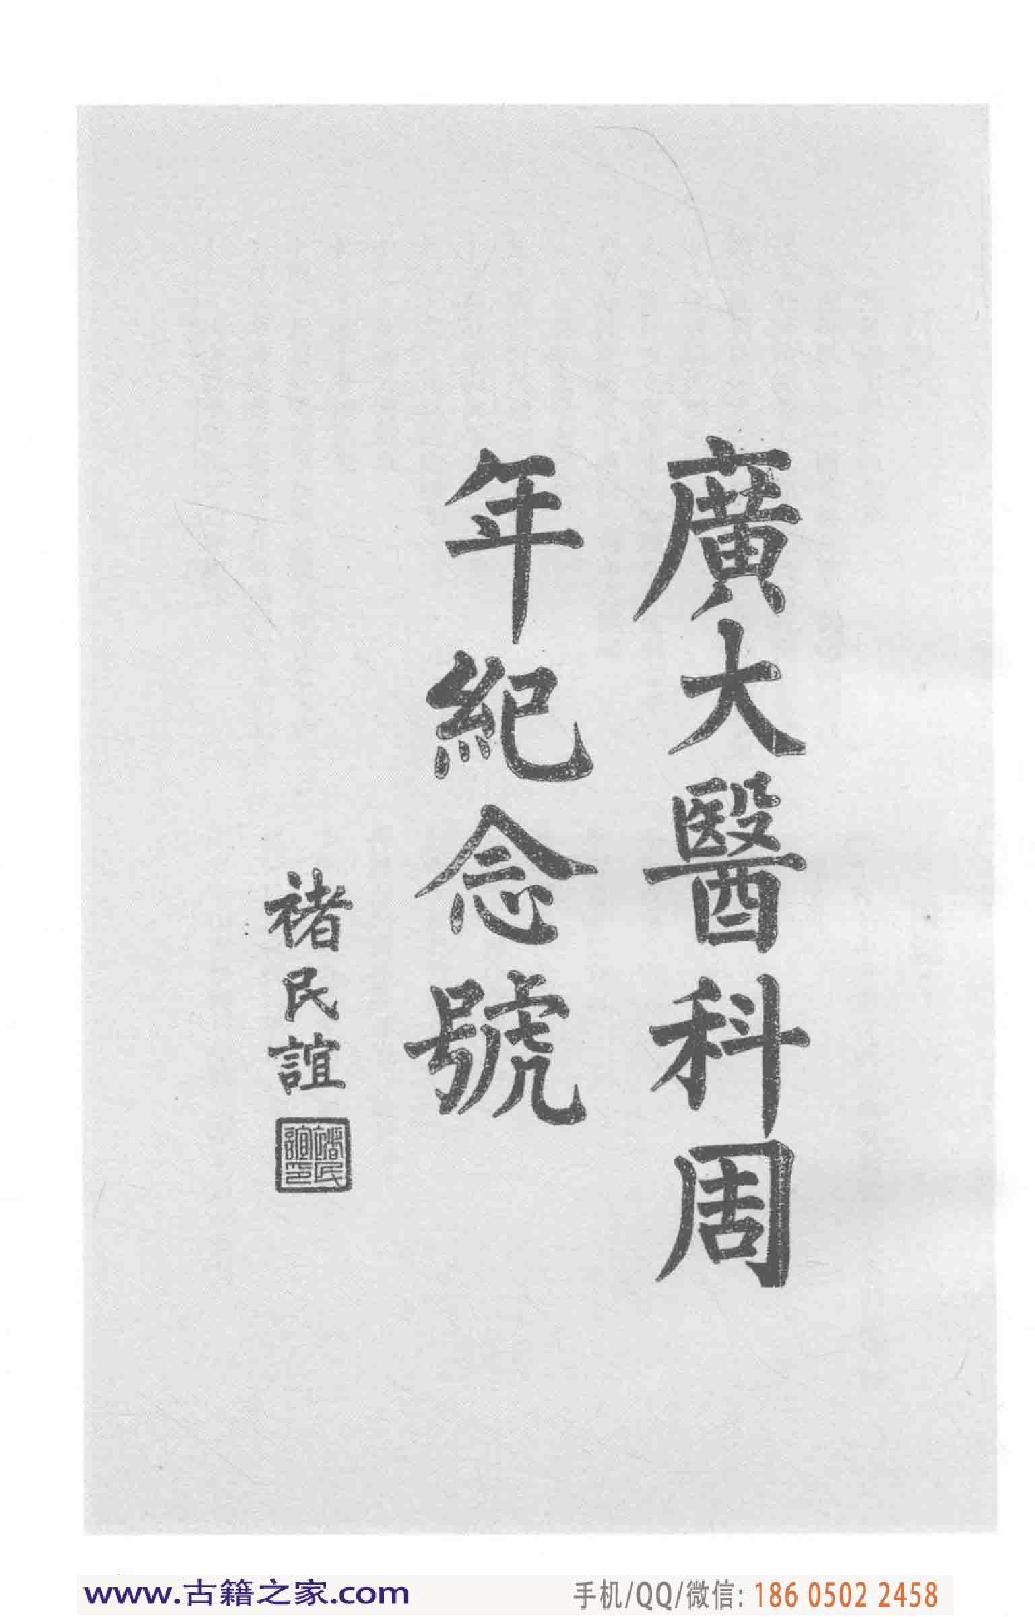 廣大醫科周
年紀念號
褚民誼
褚民
誼印
www.古籍之家.com
手机/QQ/微信: 186 0502 2458